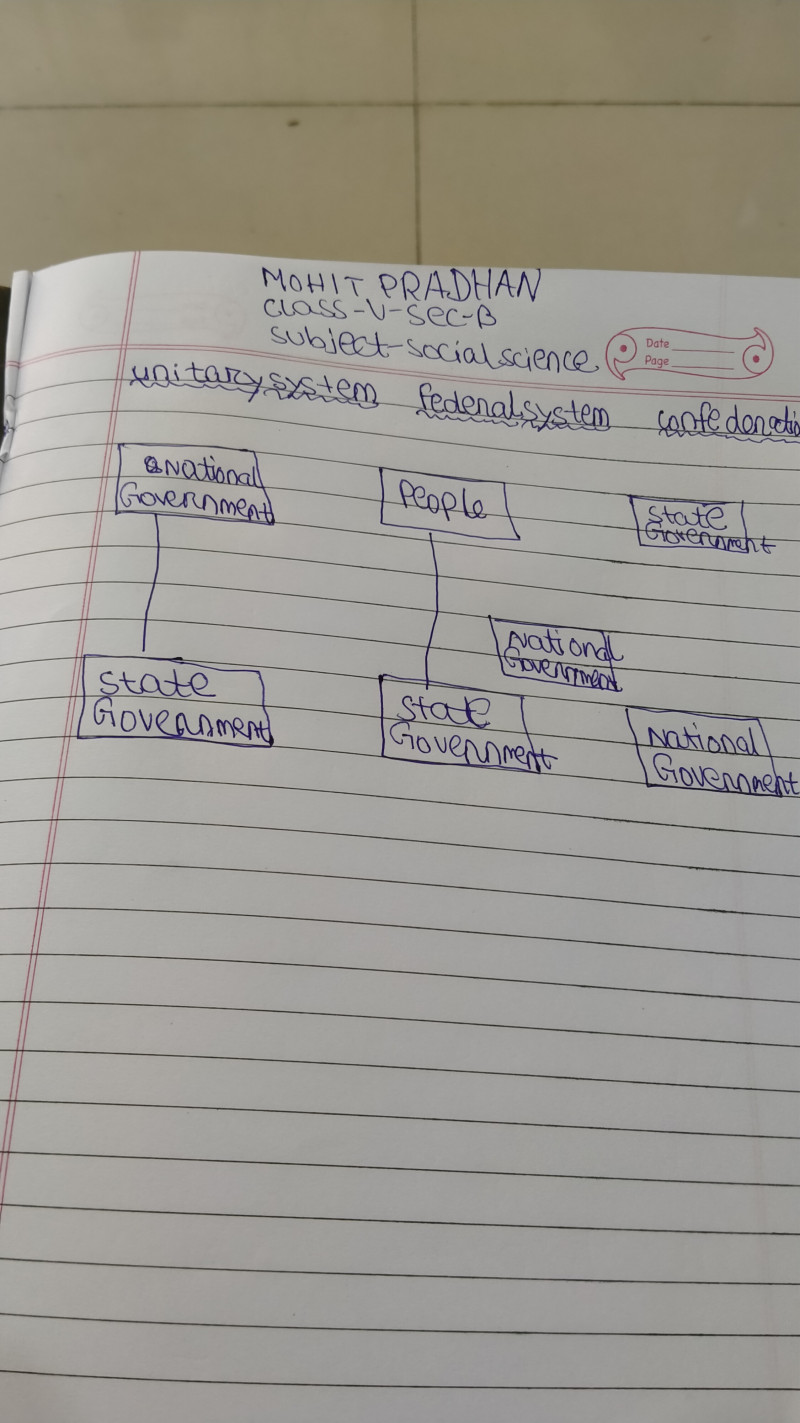 MOHIT PRADHAN
class-V-sec-B
subject-socialscience
Date
Page
unitary system fedenal system confedenatio
National
Government
People
State
Government
National
Government
State
Government
State
Government
National
Government